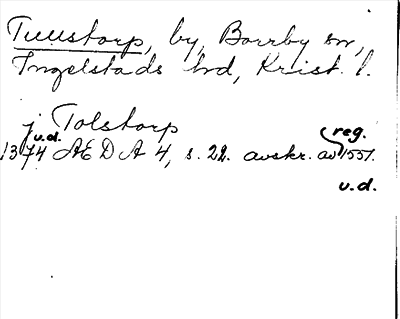 Tuustorp, by, Borrby sn,
Ingelstads hd, Krist. l.
j Tolstorp
u.d. reg.
1374 ÆDA 4, s. 22. avskr. av 1551.
u.d.